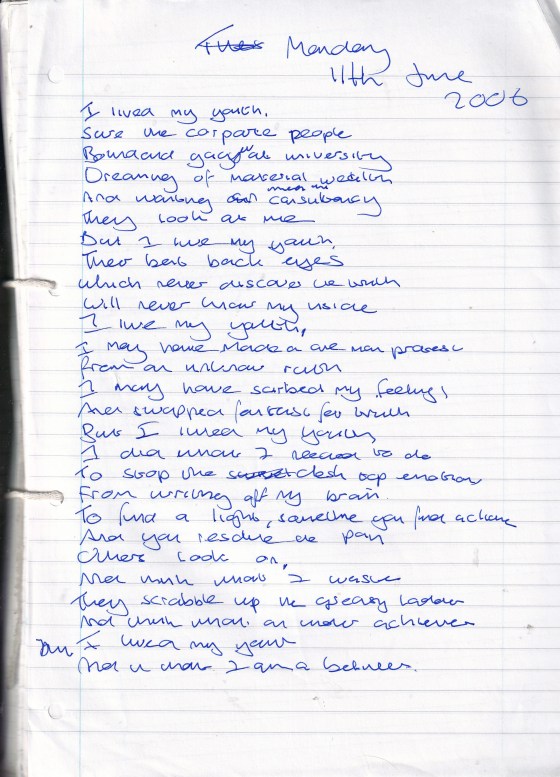 Tues Monday
11th June
2006
I lived my youth,
Save the corporate people
Bound at university
Dreaming of material wealth
And working
mean the
consultancy
They look at me
But I live my youth,
Their back eyes
Which never discover the truth
Will never know my inside
I live my youth,
I may have made a one man protest
From an unknown
I may have scarbed my feelings
And swapped fantasy for truth
But I lived my youth
I did what I needed to do
To stop the desk top emotion
From writing off my brain.
To find a light, sometime you find alone
And you resolve the pain
Others look on,
And think what I waste
They scrabble up the greasy ladder
And think what an under achiever
I lived my youth
And I am a believer.